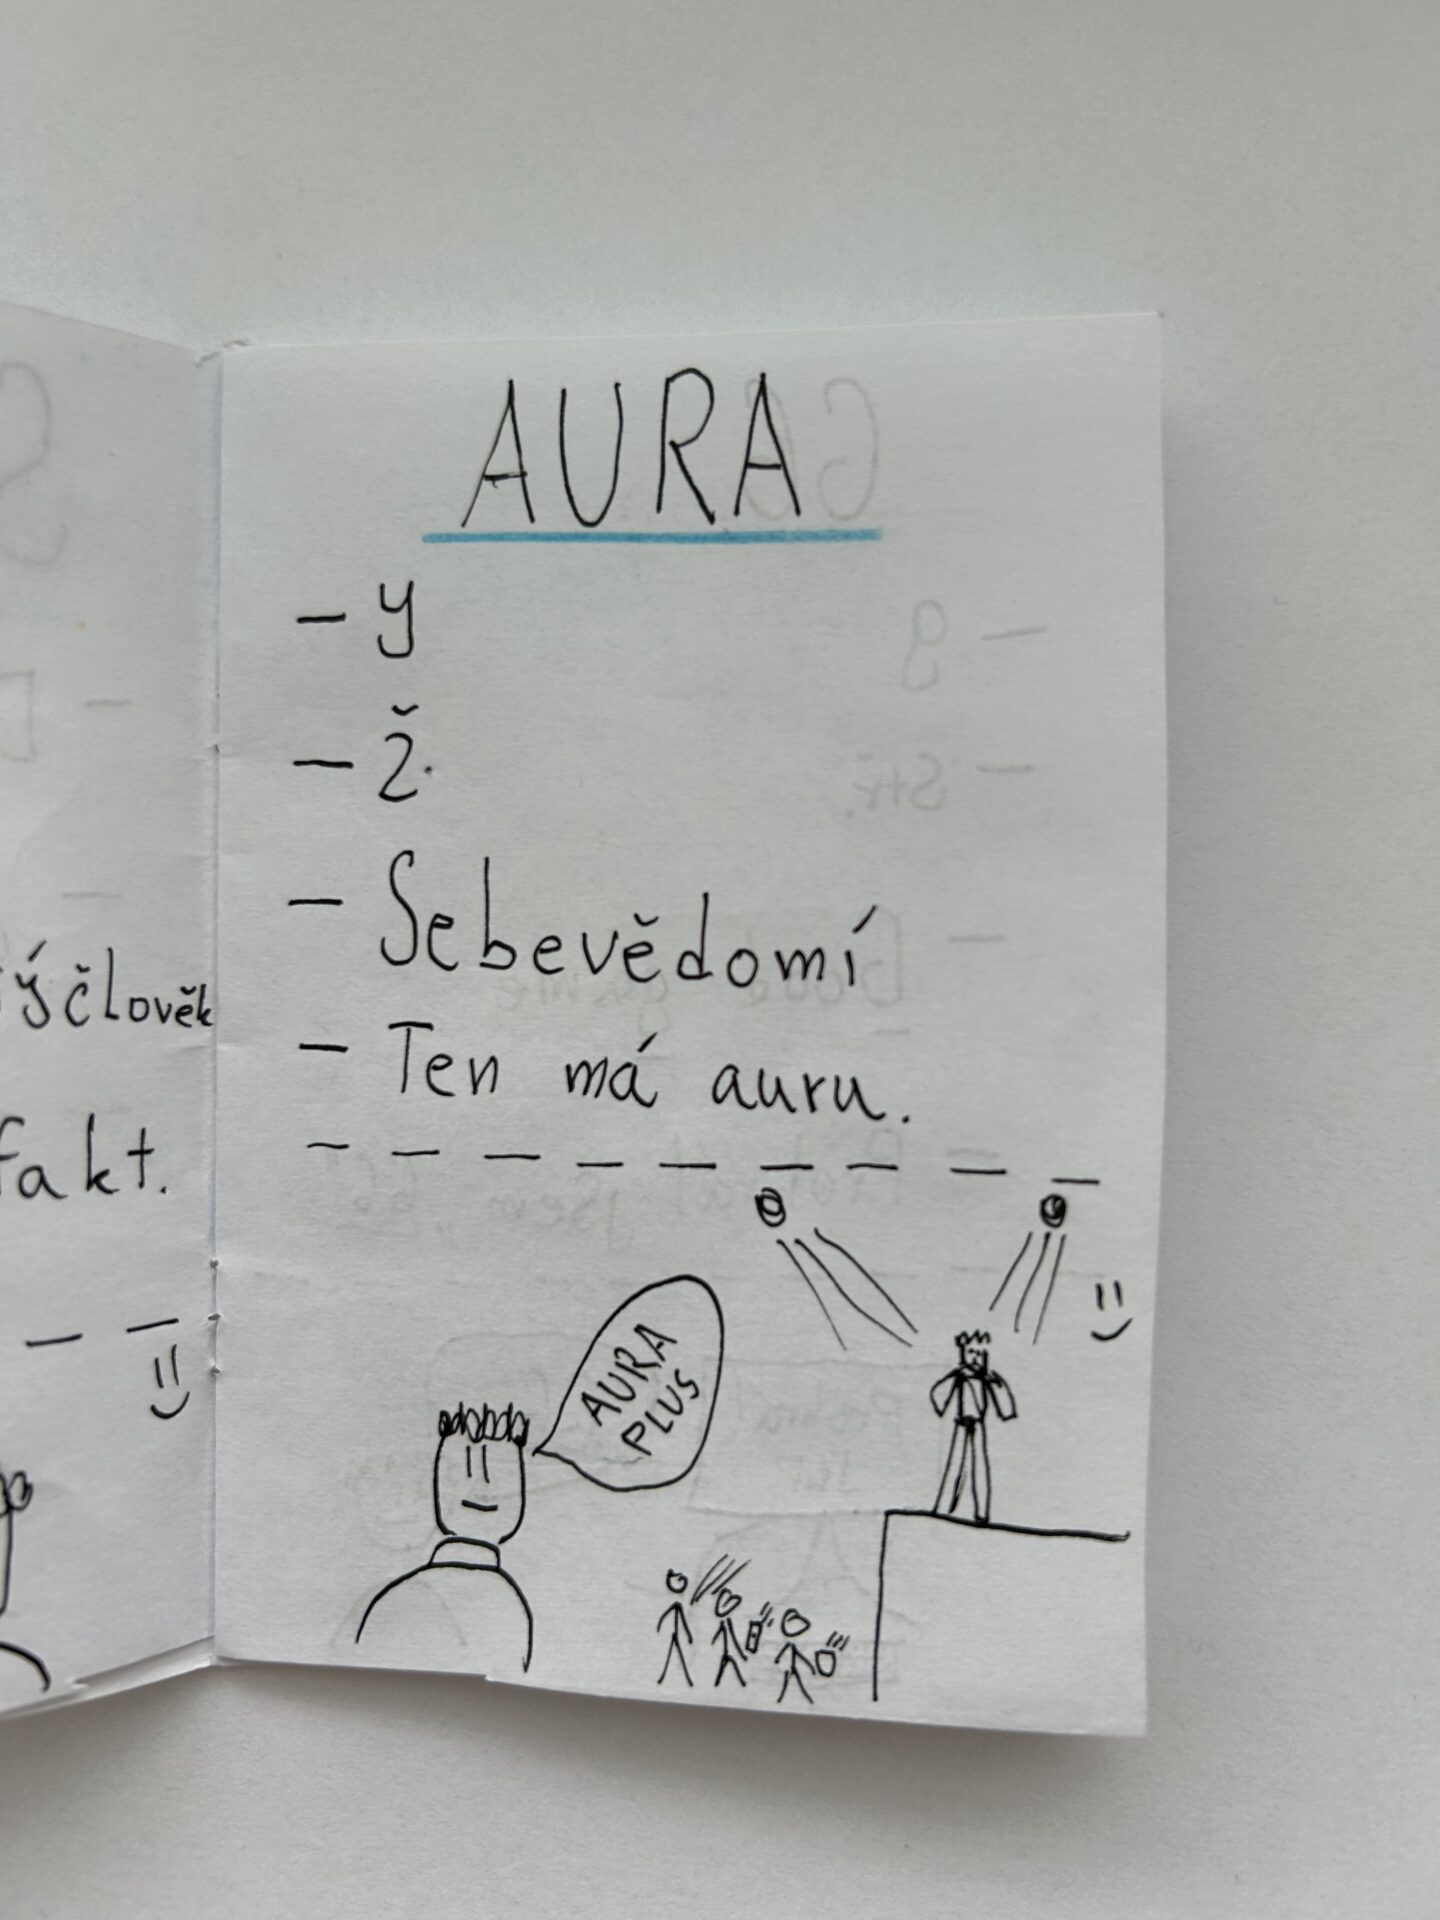 AURA
- y
- ž.
- Sebevědomí
- Ten má auru.
AURA
PLUS
člověk
fakt.